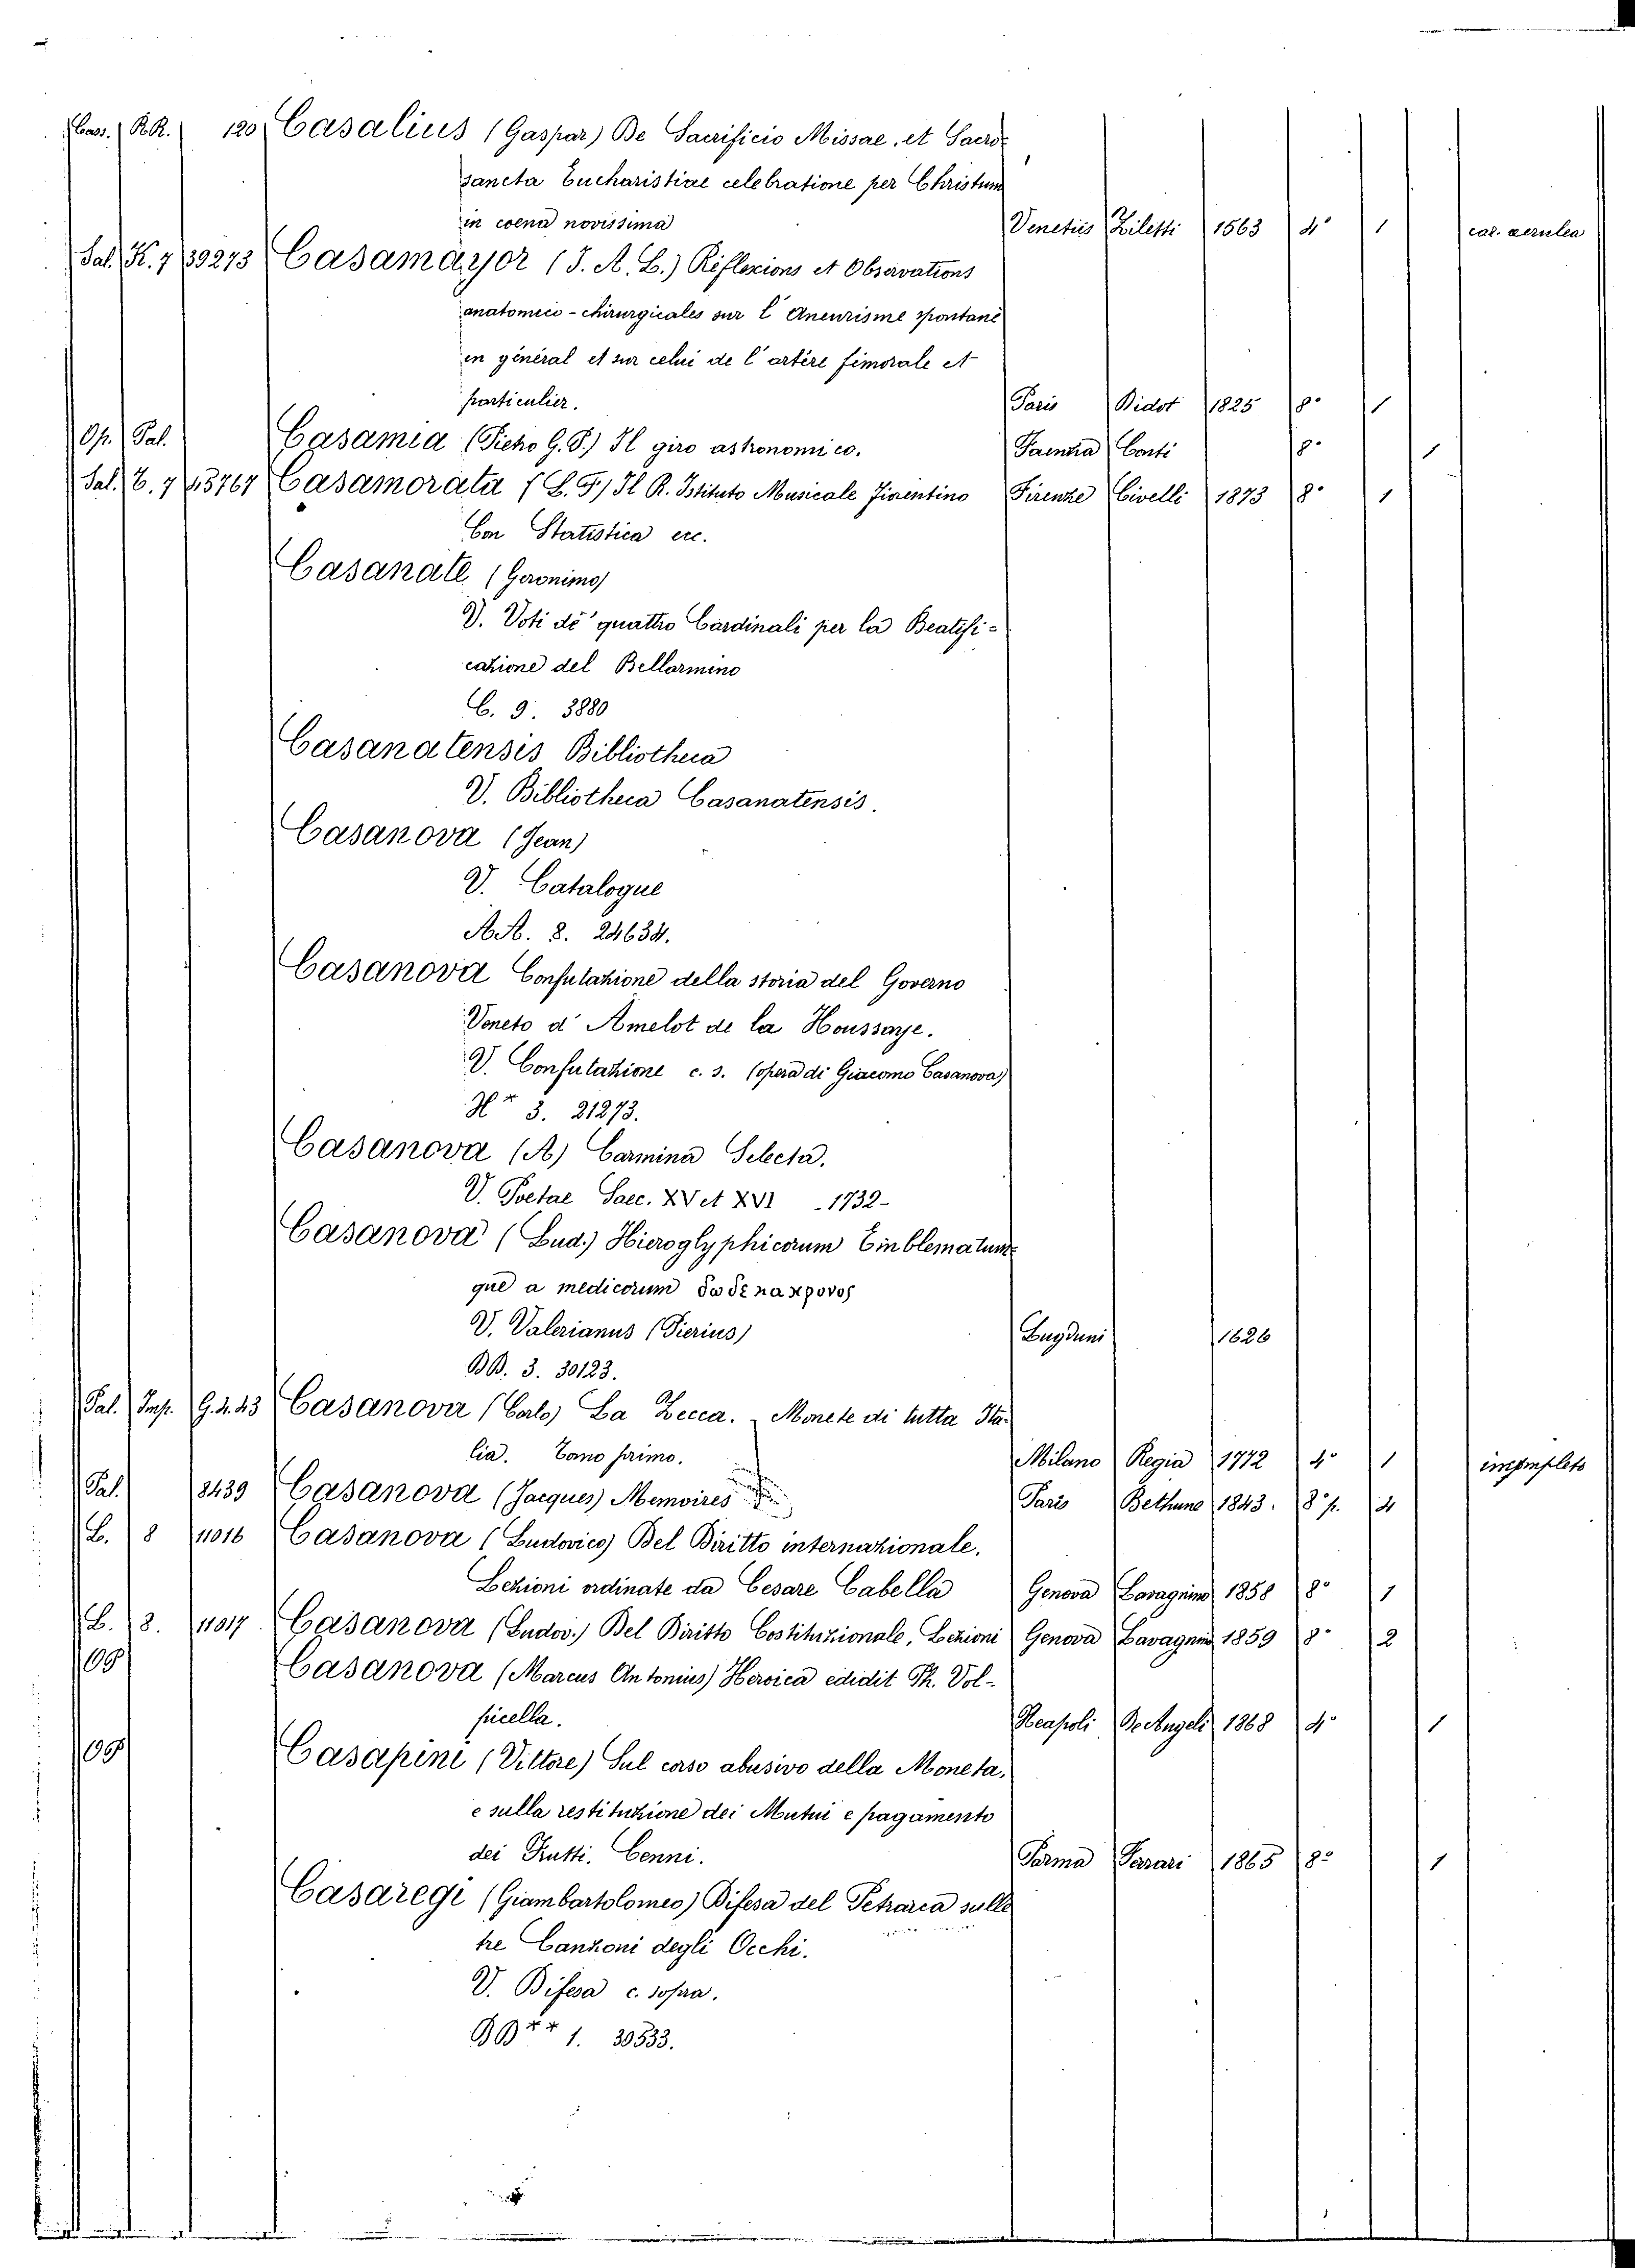 Cass. RR. 120 Casalius (Gaspar) De Sacrificio Missae, et Sacro-
sancta Eucharistiae celebratione per Christum
in coena novissima Venetiis Ziletti 1563 4° 1 car. cerulea
Sal. K. 7 39273 Casamayor (J. A. L.) Réflexions et Observations
anatomico-chirurgicales sur l'Aneurisme spontané
en général et sur celui de l'artère fémorale et
particulier. Paris Didot 1825 8° 1
Op. Pal. Casamia (Picho G. P.) Il giro astronomico. Faenza Conti 8° 1
Sal. C. 7 45767 Casamorata (L. F.) Il R. Istituto Musicale Fiorentino Firenze Civelli 1873 8° 1
Con Statistica ecc.
Casanate (Geronimo)
V. Voti de' quattro Cardinali per la Beatifi-
cazione del Bellarmino
C. 9. 3880
Casanatensis Bibliotheca
V. Bibliotheca Casanatensis.
Casanova (Jean)
V. Catalogue
AA. 8. 24634.
Casanova Confutazione della storia del Governo
Veneto d'Amelot de la Houssaye.
V. Confutazione c. s. (opera di Giacomo Casanova)
H* 3. 21273.
Casanova (A) Carmina Selecta.
V. Poetae Saec. XV et XVI - 1732-
Casanova (Lud.) Hieroglyphicorum Emblematum-
que a medicorum
V. Valerianus (Pierius) Lugduni 1626
BB. 3. 30123.
Pal. Imp. G. 4. 43 Casanova (Carlo) La Zecca. Monete di tutta Ita-
lia. Tomo primo. Milano Regia 1772 4° 1 incompleto
Pal. 8439 Casanova (Jacques) Memoires Paris Bethune 1843. 8° p. 4
L. 8 11016 Casanova (Ludovico) Del Diritto internazionale.
Lezioni ordinate da Cesare Cabella Genova Lavagnino 1858 8° 1
L. 8. 11017. Casanova (Ludov.) Del Diritto Costituzionale, Lezioni Genova Lavagnino 1859 8° 2
Casanova (Marcus Antonius) Heroica edidit Th. Vol-
picella. Neapoli De Angelis 1868 4° 1
Casapini (Vittore) Sul corso abusivo della Moneta,
e sulla restituzione dei Mutui e pagamento
dei Frutti. Cenni. Parma Ferrari 1865 8° 1
Casaregi (Giambartolomeo) Difesa del Petrarca sulle
tre Canzoni degli Occhi.
V. Difesa c. sopra.
BB** 1. 30533.